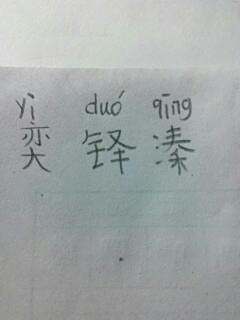 yì duó qīng
奕 铎 溱